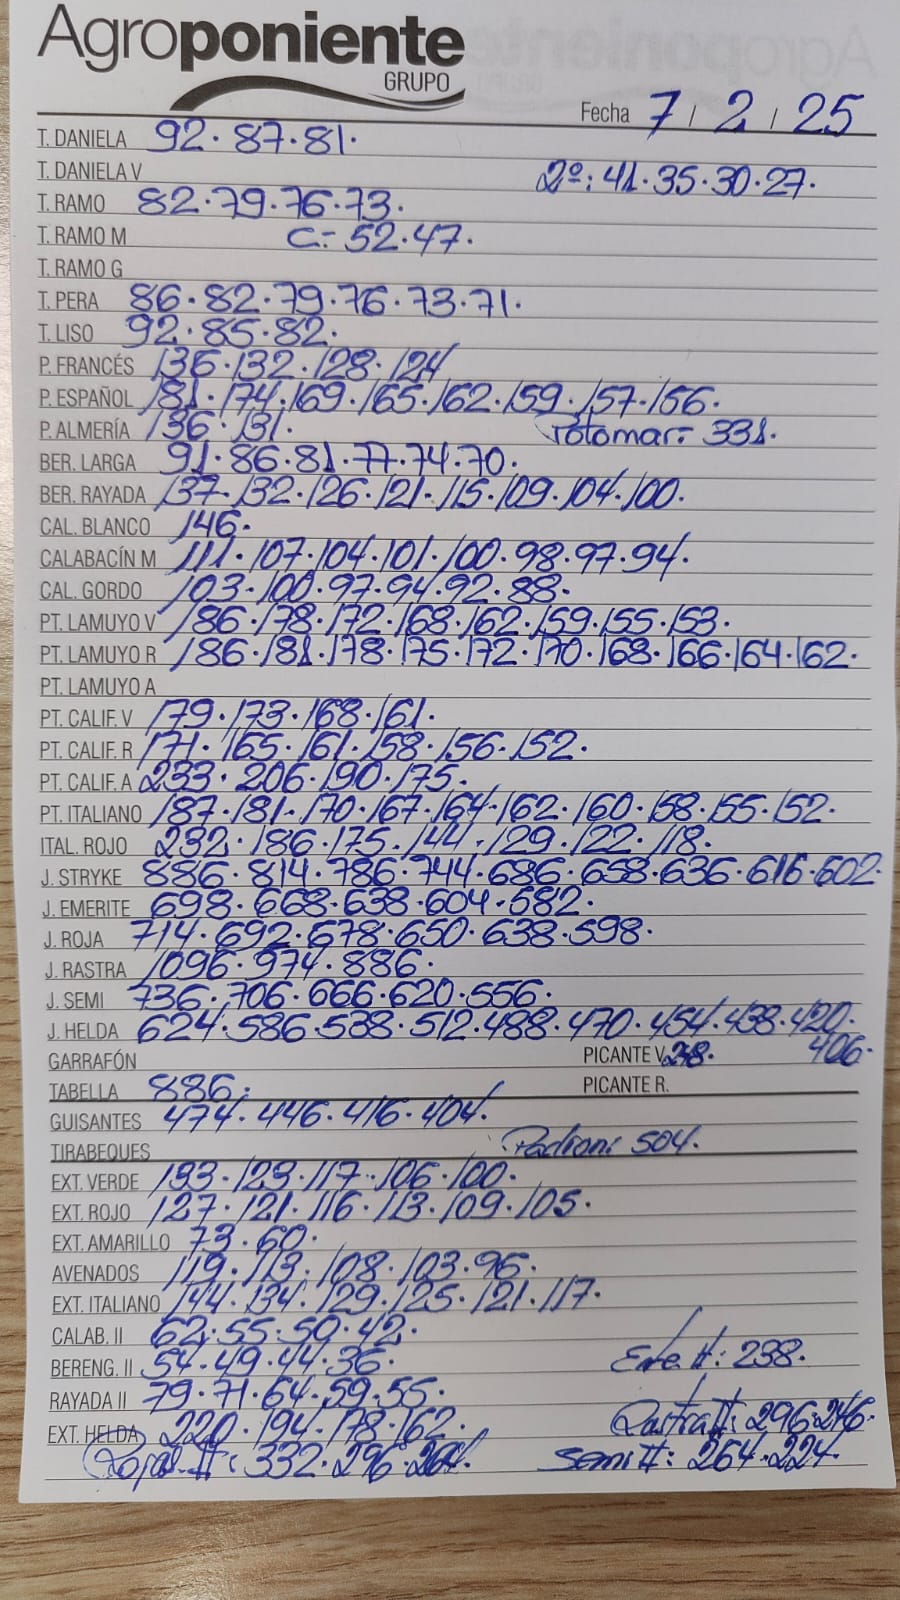 Agroponiente
GRUPO
Fecha 7 / 2 / 25
T. DANIELA 92·87·81·
T. DANELA V 2º: 41·35·30·27·
T. RAMO 82·79·76·73·
T. RAMO M C:- 52·47·
T. RAMO G
T. PERA 86·82·79·76·73·71·
T. LISO 92·85·82·
P. FRANCÉS 136·132·128·124
P. ESPAÑOL 181·174·169·165·162·159·157·156·
P. ALMERÍA 136·131· Totomar:- 331·
BER. LARGA 91·86·81·77·74·70·
BER. RAYADA 137·132·126·121·115·109·104·100·
CAL. BLANCO 146·
CALABACÍN M 111·107·104·101·100·98·97·94·
CAL. GORDO 103·100·97·94·92·88·
PT. LAMUYO V 186·178·172·168·162·159·155·153·
PT. LAMUYO R 186·181·178·175·172·170·168·166·164·162·
PT. LAMUYO A
PT. CALIF. V 179·173·168·161·
PT. CALIF. R 171·165·161·158·156·152·
PT. CALIF. A 233·206·190·175·
PT. ITALIANO 187·181·170·167·164·162·160·158·155·152·
ITAL. ROJO 232·186·175·144·129·122·118·
J. STRYKE 886·814·786·744·686·658·636·616·602·
J. EMERITE 698·668·638·604·582·
J. ROJA 714·692·678·650·638·598·
J. RASTRA 1096·974·886·
J. SEMI 736·706·666·620·556·
J. HELDA 624·586·538·512·488·470·454·438·420·
GARRAFÓN PICANTE V. 406·
TABELLA 886· PICANTE R.
GUISANTES 474·446·416·404·
TIRABEQUES Padron: 504·
EXT. VERDE 133·123·117·106·100·
EXT. ROJO 127·121·116·113·109·105·
EXT. AMARILLO 73·60·
AVENADOS 119·113·108·103·96·
EXT. ITALIANO 144·134·129·125·121·117·
CALAB. II 62·55·50·42·
BERENG. II 54·49·44·36· II: 238·
RAYADA II 79·71·64·59·55·
EXT. HELDA 220·194·178·162· Rastra II: 296·246·
Roja II: 332·296·264· Semi II: 264·224·